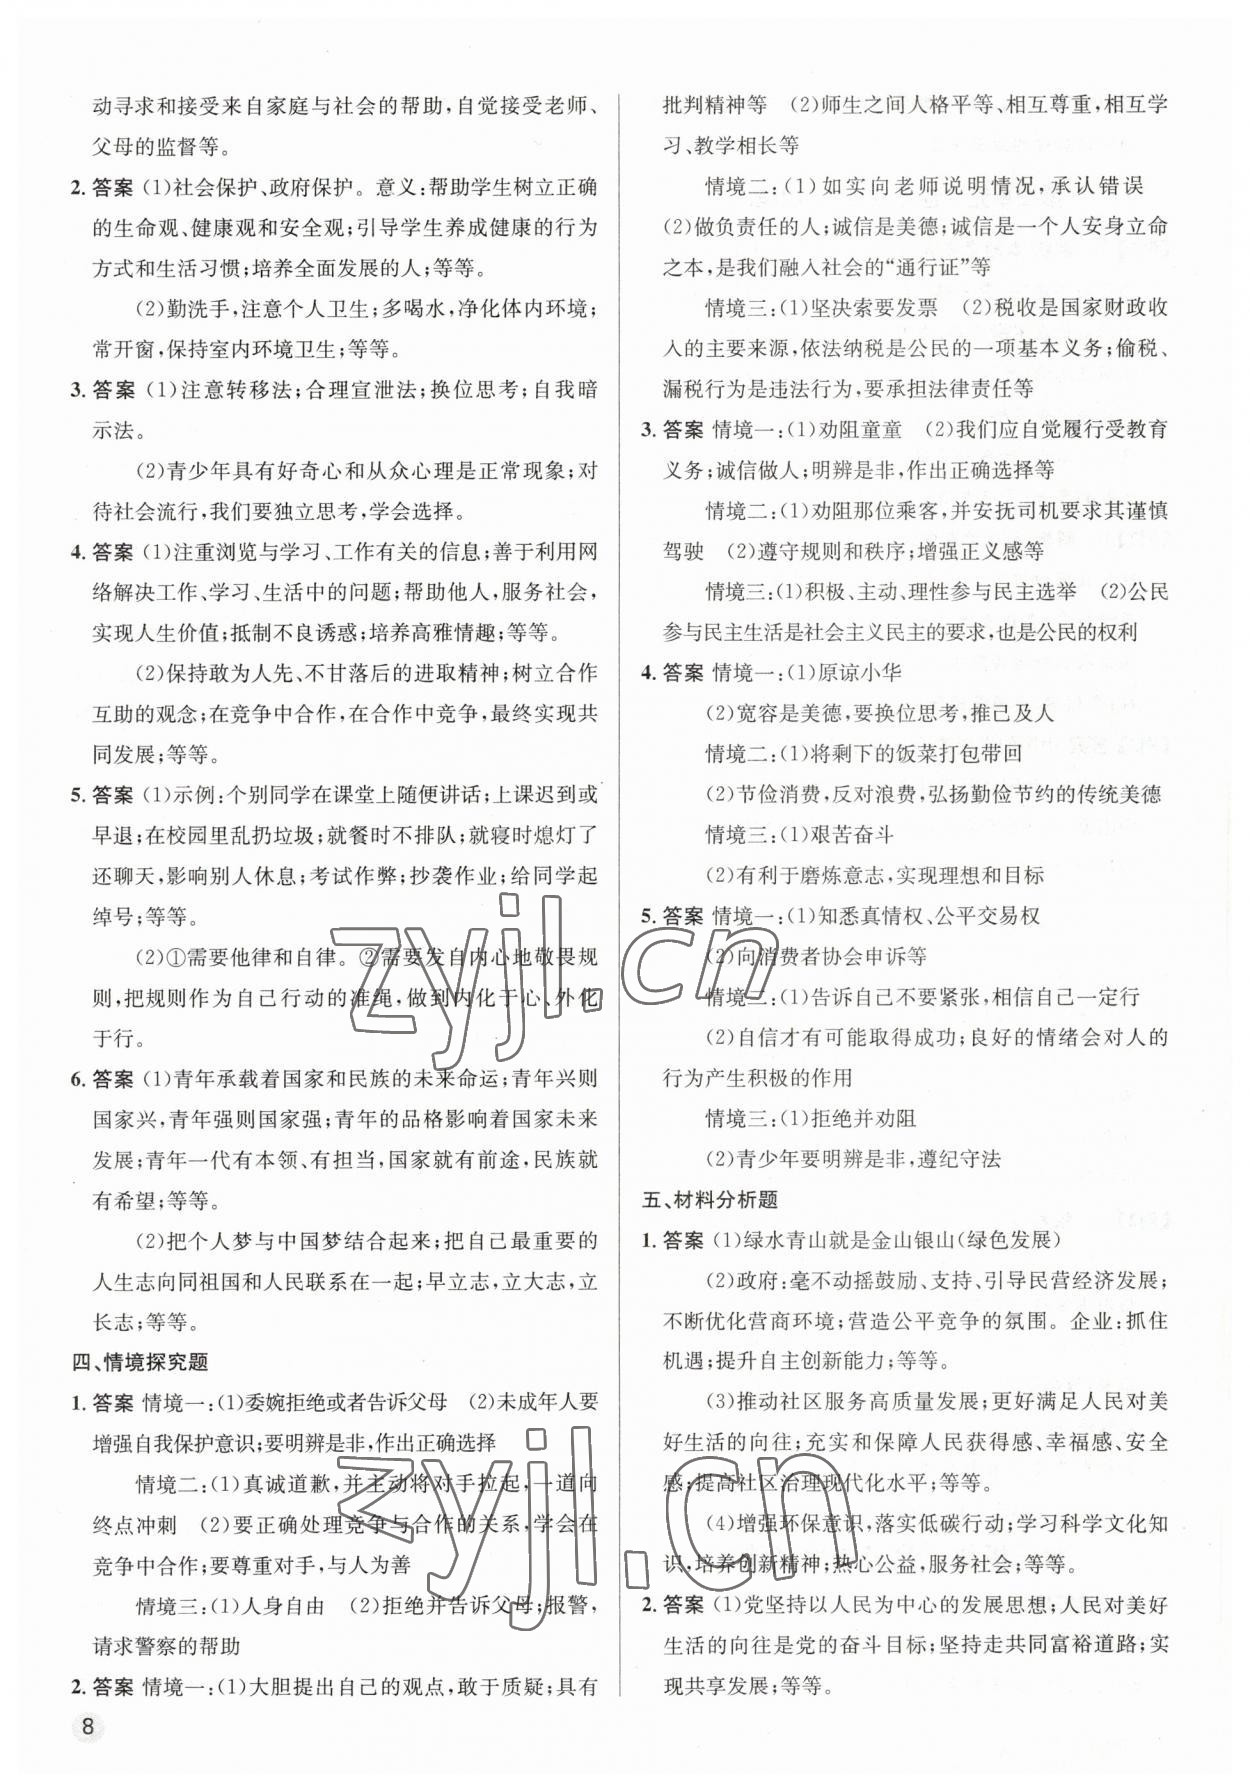 动寻求和接受来自家庭与社会的帮助,自觉接受老师、
父母的监督等。
2. 答案 (1)社会保护、政府保护。意义:帮助学生树立正确
的生命观、健康观和安全观;引导学生养成健康的行为
方式和生活习惯;培养全面发展的人;等等。
(2)勤洗手,注意个人卫生;多喝水,净化体内环境;
常开窗,保持室内环境卫生;等等。
3. 答案 (1)注意转移法;合理宣泄法;换位思考;自我暗
示法。
(2)青少年具有好奇心和从众心理是正常现象;对
待社会流行,我们要独立思考,学会选择。
4. 答案 (1)注重浏览与学习、工作有关的信息;善于利用网
络解决工作、学习、生活中的问题;帮助他人,服务社会,
实现人生价值;抵制不良诱惑;培养高雅情趣;等等。
(2)保持敢为人先、不甘落后的进取精神;树立合作
互助的观念;在竞争中合作,在合作中竞争,最终实现共
同发展;等等。
5. 答案 (1)示例:个别同学在课堂上随便讲话;上课迟到或
早退;在校园里乱扔垃圾;就餐时不排队;就寝时熄灯了
还聊天,影响别人休息;考试作弊;抄袭作业;给同学起
绰号;等等。
(2)①需要他律和自律。②需要发自内心地敬畏规
则,把规则作为自己行动的准绳,做到内化于心、外化
于行。
6. 答案 (1)青年承载着国家和民族的未来命运;青年兴则
国家兴,青年强则国家强;青年的品格影响着国家未来
发展;青年一代有本领、有担当,国家就有前途,民族就
有希望;等等。
(2)把个人梦与中国梦结合起来;把自己最重要的
人生志向同祖国和人民联系在一起;早立志,立大志,立
长志;等等。
四、情境探究题
1. 答案 情境一:(1)委婉拒绝或者告诉父母 (2)未成年人要
增强自我保护意识;要明辨是非,作出正确选择
情境二:(1)真诚道歉,并主动将对手拉起,一道向
终点冲刺 (2)要正确处理竞争与合作的关系,学会在
竞争中合作;要尊重对手,与人为善
情境三:(1)人身自由 (2)拒绝并告诉父母;报警,
请求警察的帮助
2. 答案 情境一:(1)大胆提出自己的观点,敢于质疑;具有
8
批判精神等 (2)师生之间人格平等、相互尊重,相互学
习、教学相长等
情境二:(1)如实向老师说明情况,承认错误
(2)做负责任的人;诚信是美德;诚信是一个人安身立命
之本,是我们融入社会的“通行证”等
情境三:(1)坚决索要发票 (2)税收是国家财政收
入的主要来源,依法纳税是公民的一项基本义务;偷税、
漏税行为是违法行为,要承担法律责任等
3. 答案 情境一:(1)劝阻童童 (2)我们应自觉履行受教育
义务;诚信做人;明辨是非,作出正确选择等
情境二:(1)劝阻那位乘客,并安抚司机要求其谨慎
驾驶 (2)遵守规则和秩序;增强正义感等
情境三:(1)积极、主动、理性参与民主选举 (2)公民
参与民主生活是社会主义民主的要求,也是公民的权利
4. 答案 情境一:(1)原谅小华
(2)宽容是美德,要换位思考,推己及人
情境二:(1)将剩下的饭菜打包带回
(2)节俭消费,反对浪费,弘扬勤俭节约的传统美德
情境三:(1)艰苦奋斗
(2)有利于磨炼意志,实现理想和目标
5. 答案 情境一:(1)知悉真情权、公平交易权
(2)向消费者协会申诉等
情境二:(1)告诉自己不要紧张,相信自己一定行
(2)自信才有可能取得成功;良好的情绪会对人的
行为产生积极的作用
情境三:(1)拒绝并劝阻
(2)青少年要明辨是非,遵纪守法
五、材料分析题
1. 答案 (1)绿水青山就是金山银山(绿色发展)
(2)政府:毫不动摇鼓励、支持、引导民营经济发展;
不断优化营商环境;营造公平竞争的氛围。企业:抓住
机遇;提升自主创新能力;等等。
(3)推动社区服务高质量发展;更好满足人民对美
好生活的向往;充实和保障人民获得感、幸福感、安全
感;提高社区治理现代化水平;等等。
(4)增强环保意识,落实低碳行动;学习科学文化知
识,培养创新精神;热心公益,服务社会;等等。
2. 答案 (1)党坚持以人民为中心的发展思想;人民对美好
生活的向往是党的奋斗目标;坚持走共同富裕道路;实
现共享发展;等等。
zyjl.cn
zyjl.cn